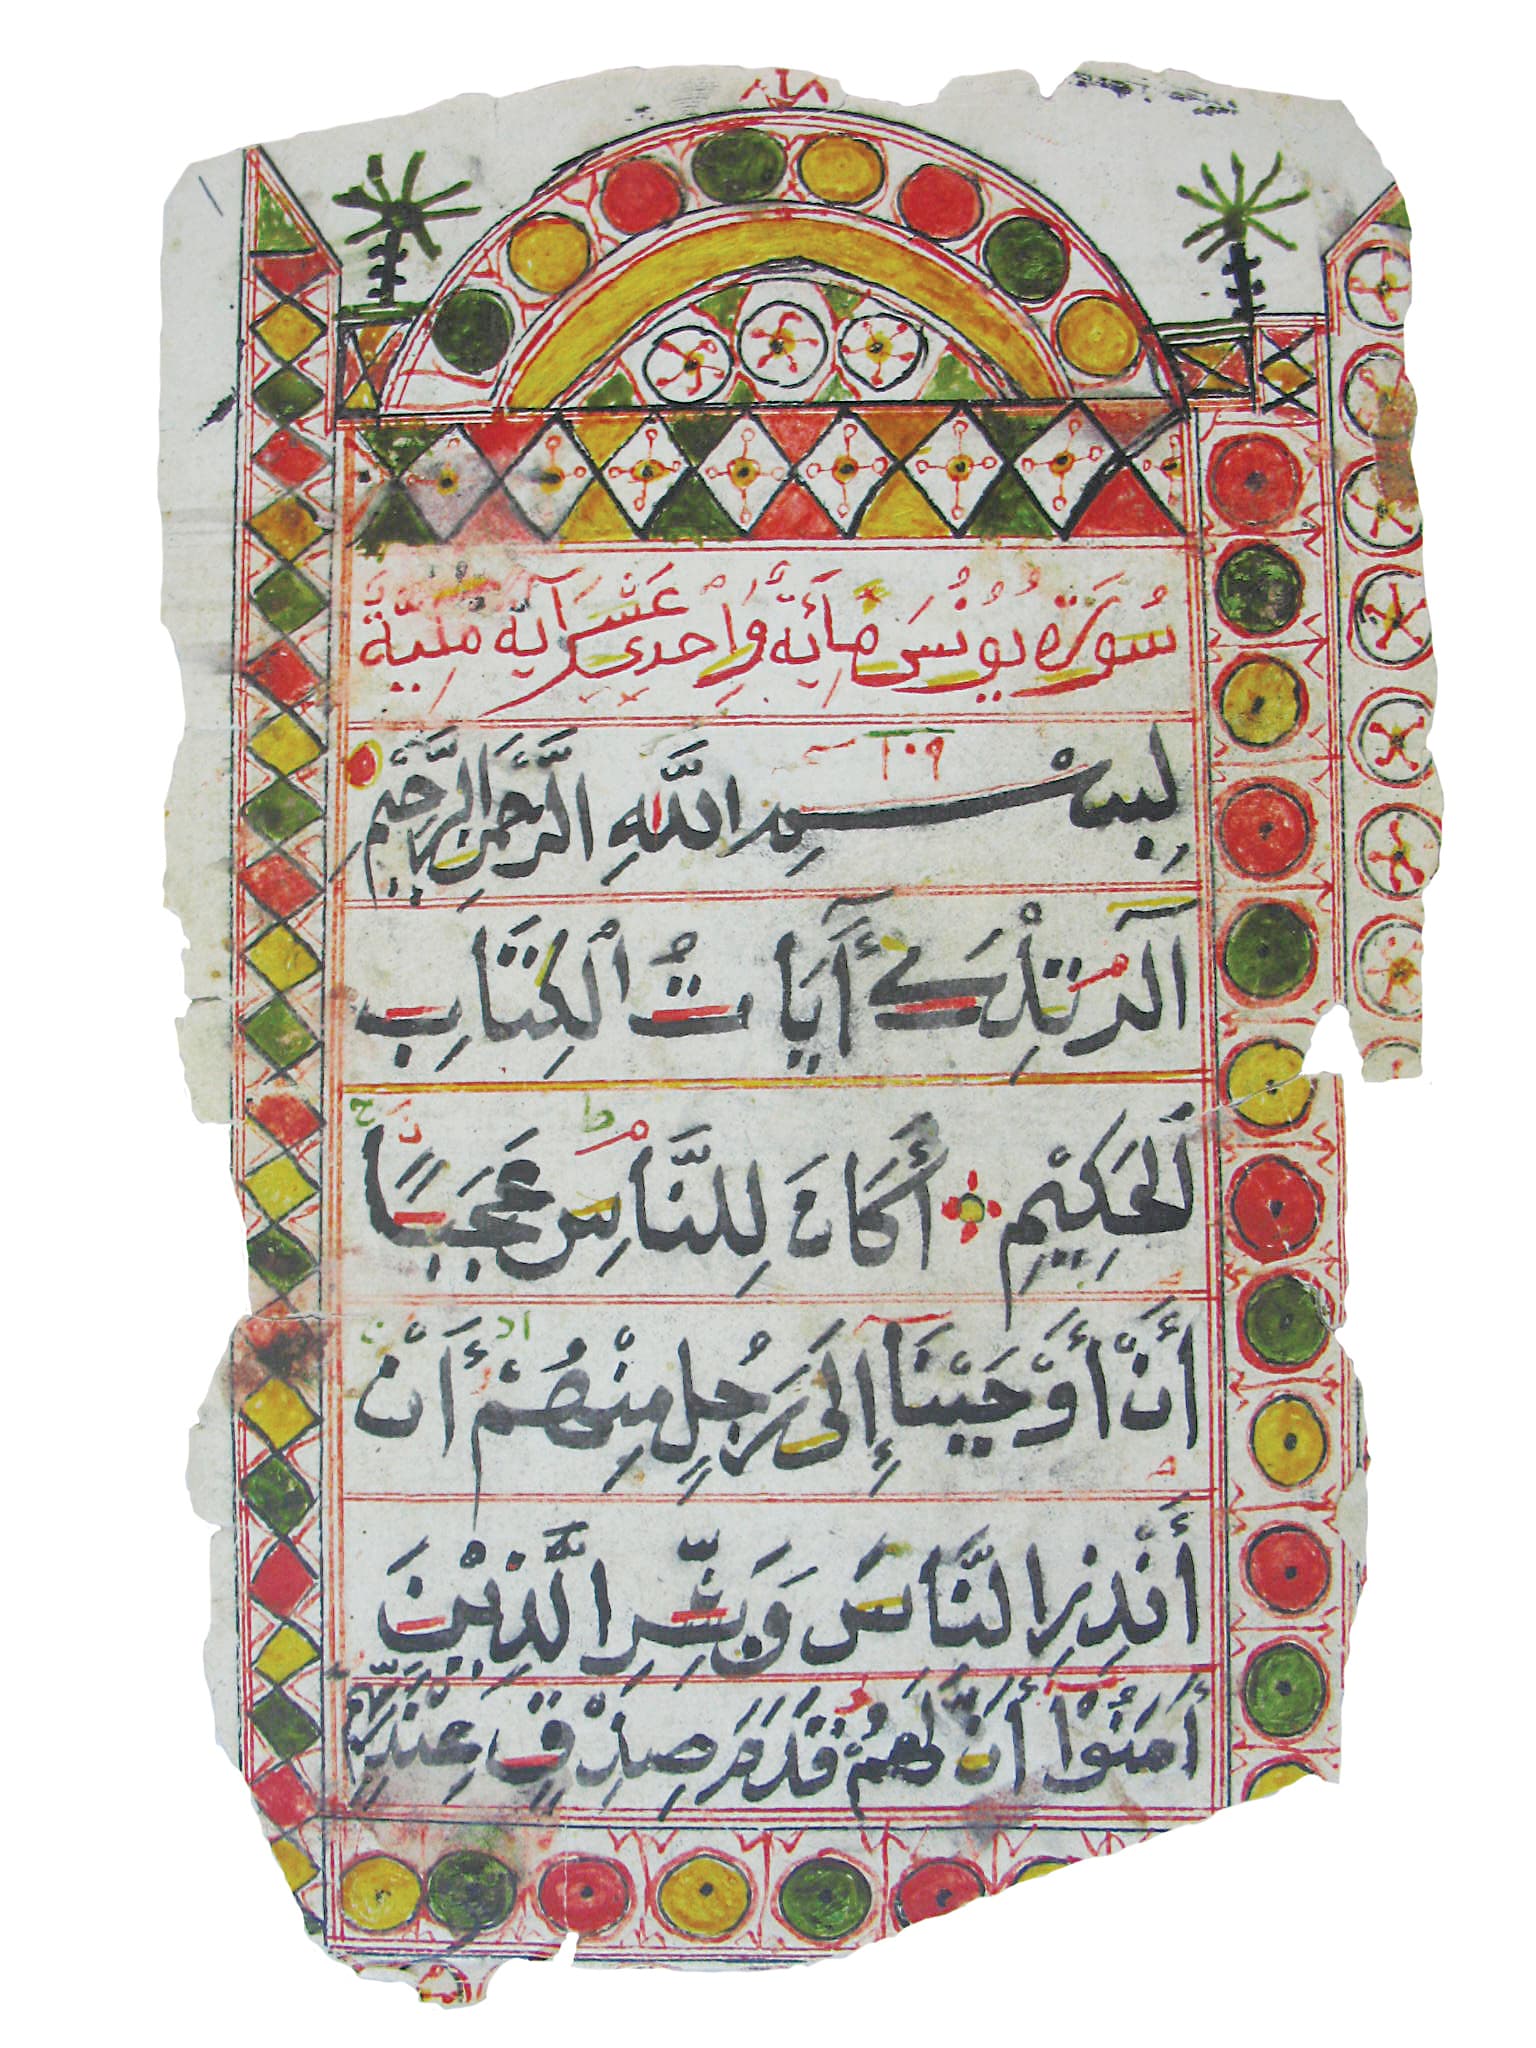 سُورَة يُونُسَ مِائَةٌ وَاِحْدٰى عَشَرَ آيَة مَكِّيَّة
١٠٩
بِسْمِ اللَّهِ الرَّحْمٰنِ الرَّحِيْمِ
آلر تِلْكَ أٰيَاتُ الْكِتَابِ
الْحَكِيْمِ أَكَانَ لِلنَّاسِ عَجَبًا
أَنْ أَوْحَيْنَا إِلَى رَجُلٍ مِنْهُمْ أَنْ
أَنْذِرِ النَّاسَ وَبَشِّرِ الَّذِيْنَ
اٰمَنُوْا أَنَّ لَهُمْ قَدَمَ صِدْقٍ عِنْدَ رَبِّهِمْ